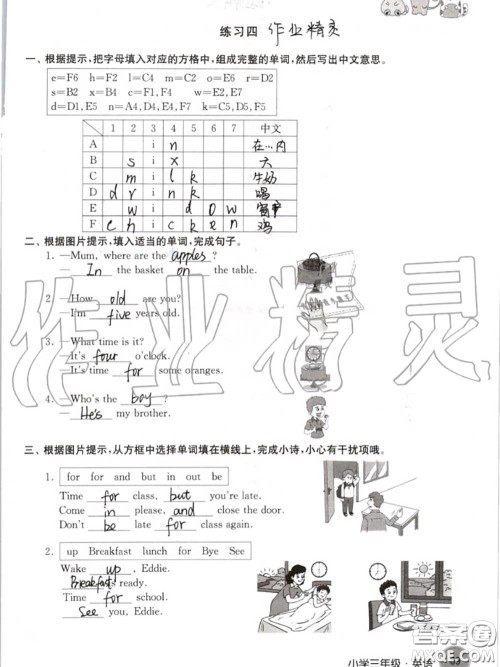 练习四 作业精灵
一、根据提示，把字母填入对应的方格中，组成完整的单词，然后写出中文意思。
e=F6 h=F2 l=C4 m=C2 o=E6 r=D2
s=B2 x=B4 i=F3 c=F4 w=E2,E7
d=D1,E5 n=A4,D4,E4,F7 k=C5,D5,F5
1 2 3 4 5 6 7 中文
A i n 在…内
B s i x 六
C m i l k 牛奶
D d r i n k 喝
E w i d o w 窗户
F c h i c k e n 鸡
二、根据图片提示，填入适当的单词，完成句子。
1. —Mum, where are the apples ?
— In the basket on the table.
2. —How old are you?
—I'm five years old.
3. —What time is it?
—It's four o'clock.
—It's time for some oranges.
4. —Who's the boy ?
— He's my brother.
三、根据图片提示，从方框中选择单词填在横线上，完成小诗，小心有干扰项哦。
1. for for and but in out be
Time for class, but you're late.
Come in please, and close the door.
Don't be late for class again.
2. up Breakfast lunch for Bye See
Wake up , Eddie.
Breakfast's ready.
Time for school.
See you, Eddie.
小学三年级·英语
作业精灵
答案圈